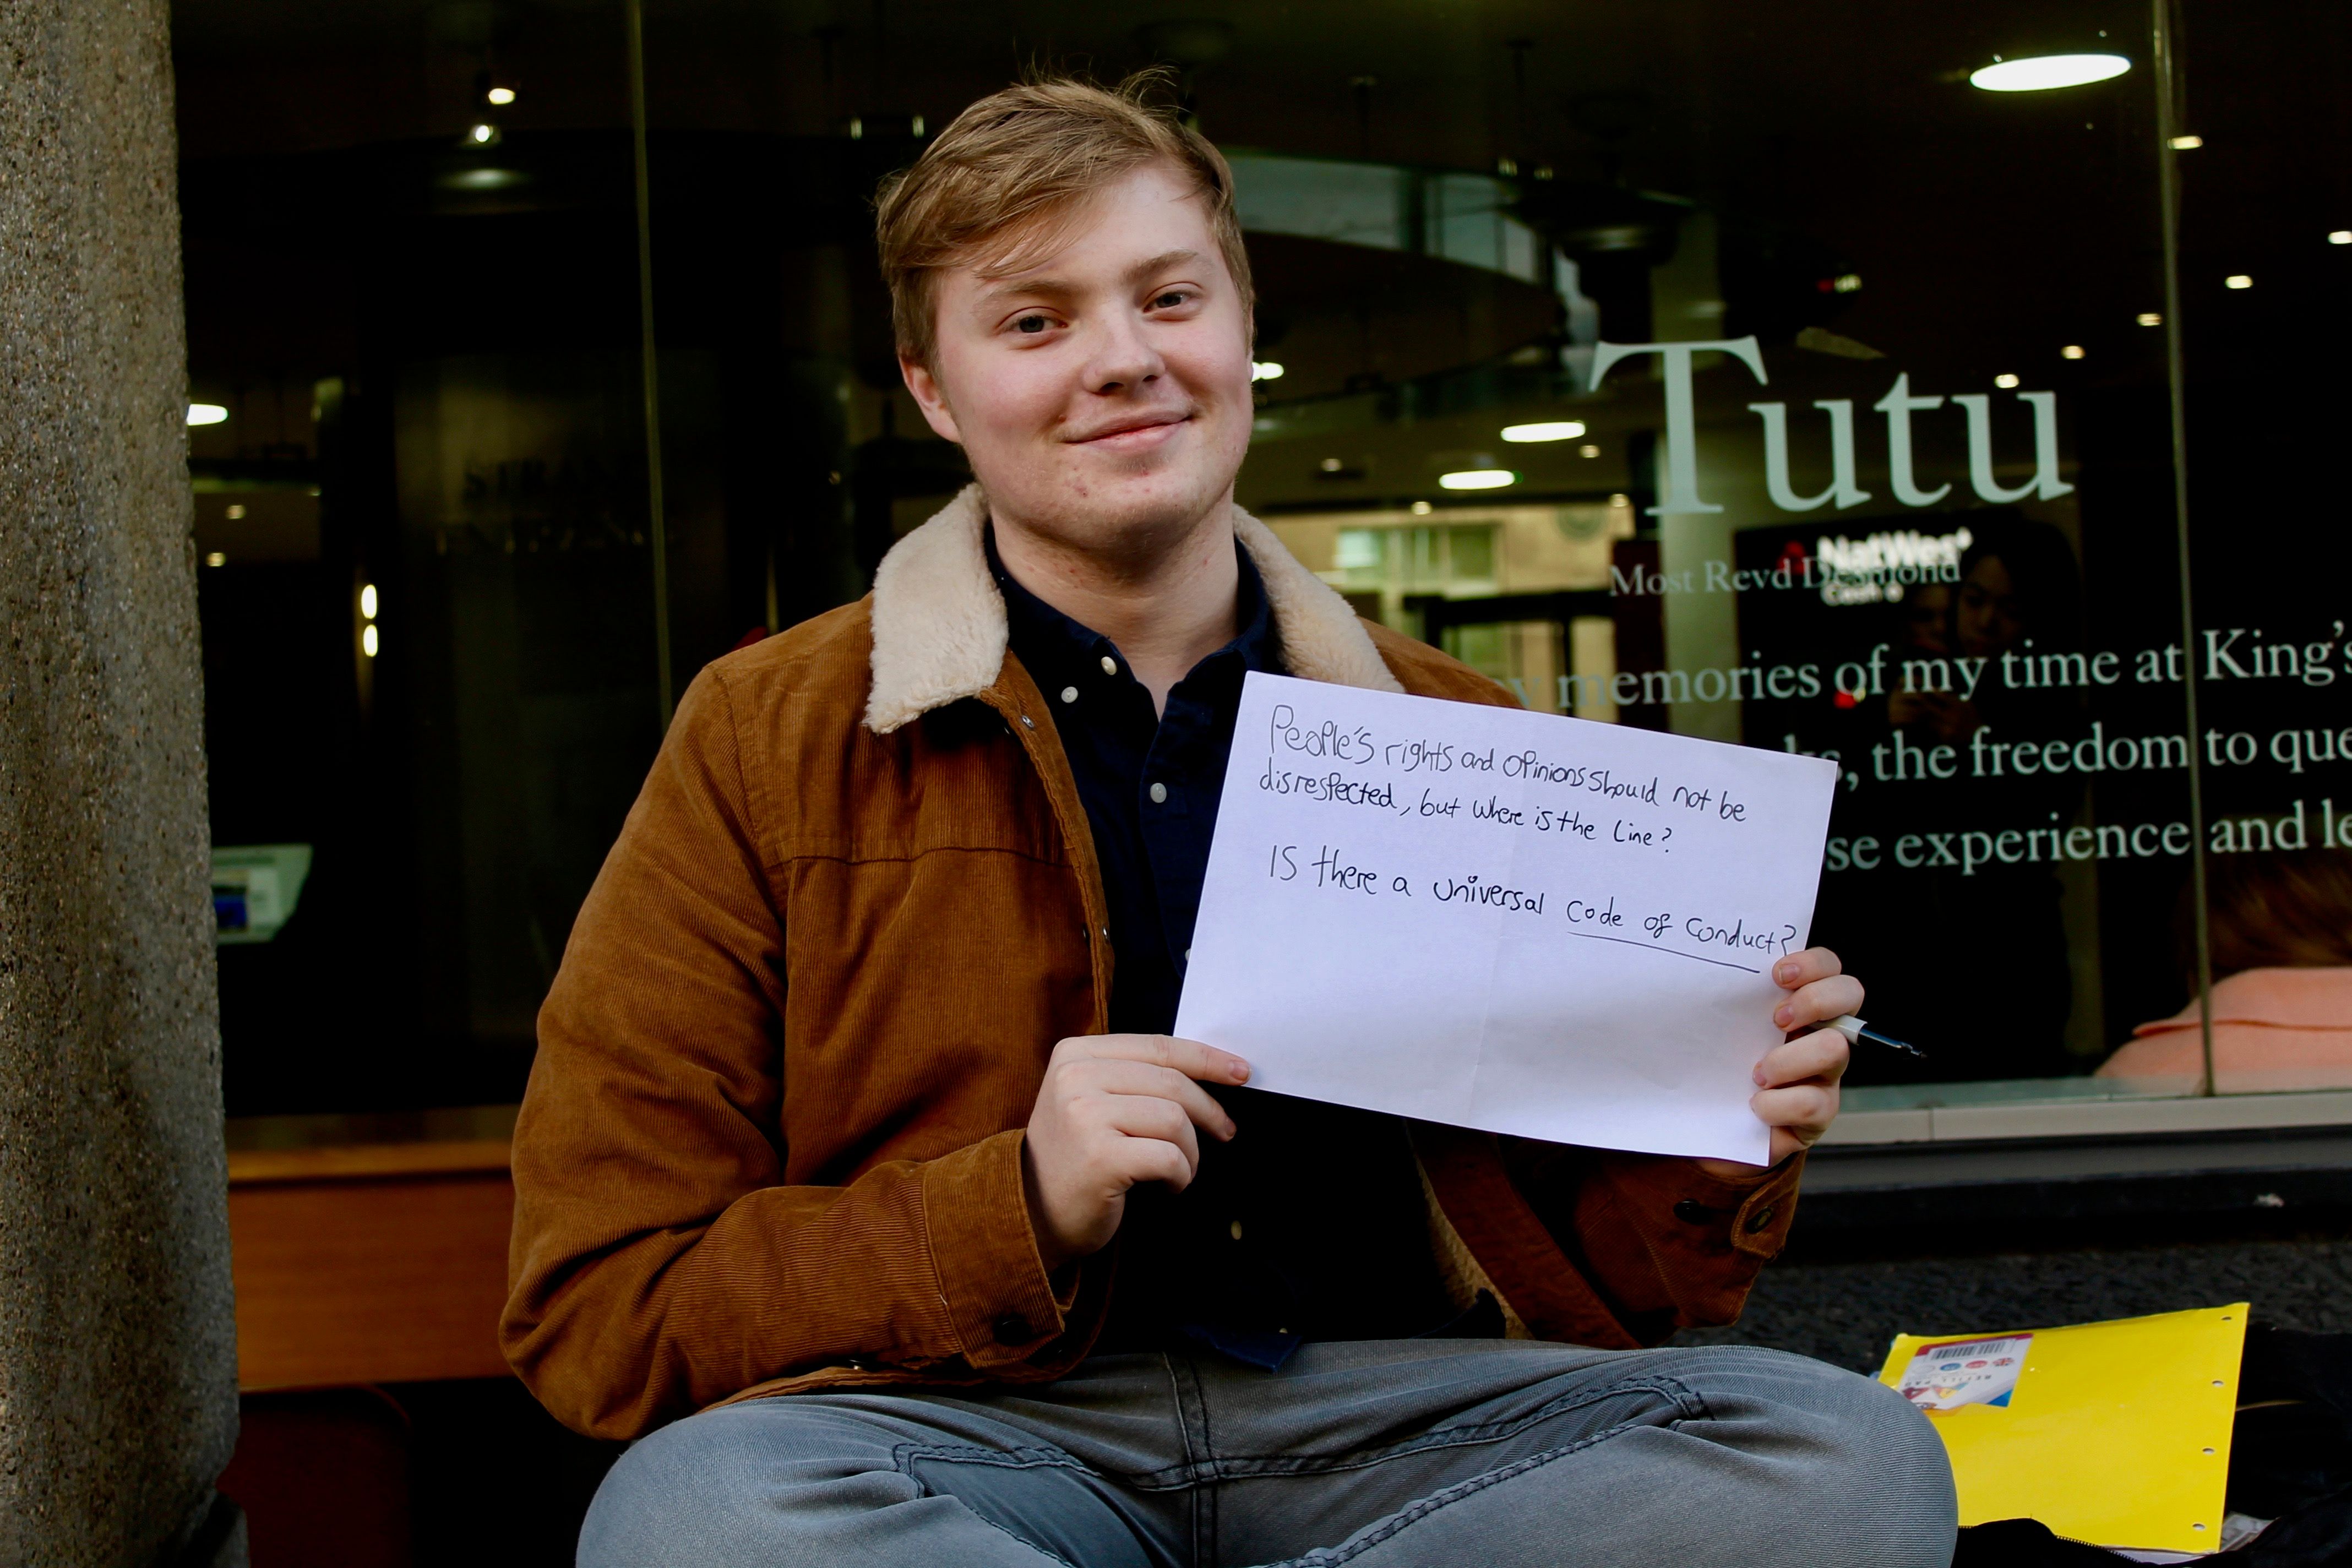 Tutu
Most Revd Desmond
NatWes
memories of my time at King's
, the freedom to que
se experience and le
People's rights and opinions should not be
disrespected, but where is the line?
Is there a universal code of conduct?